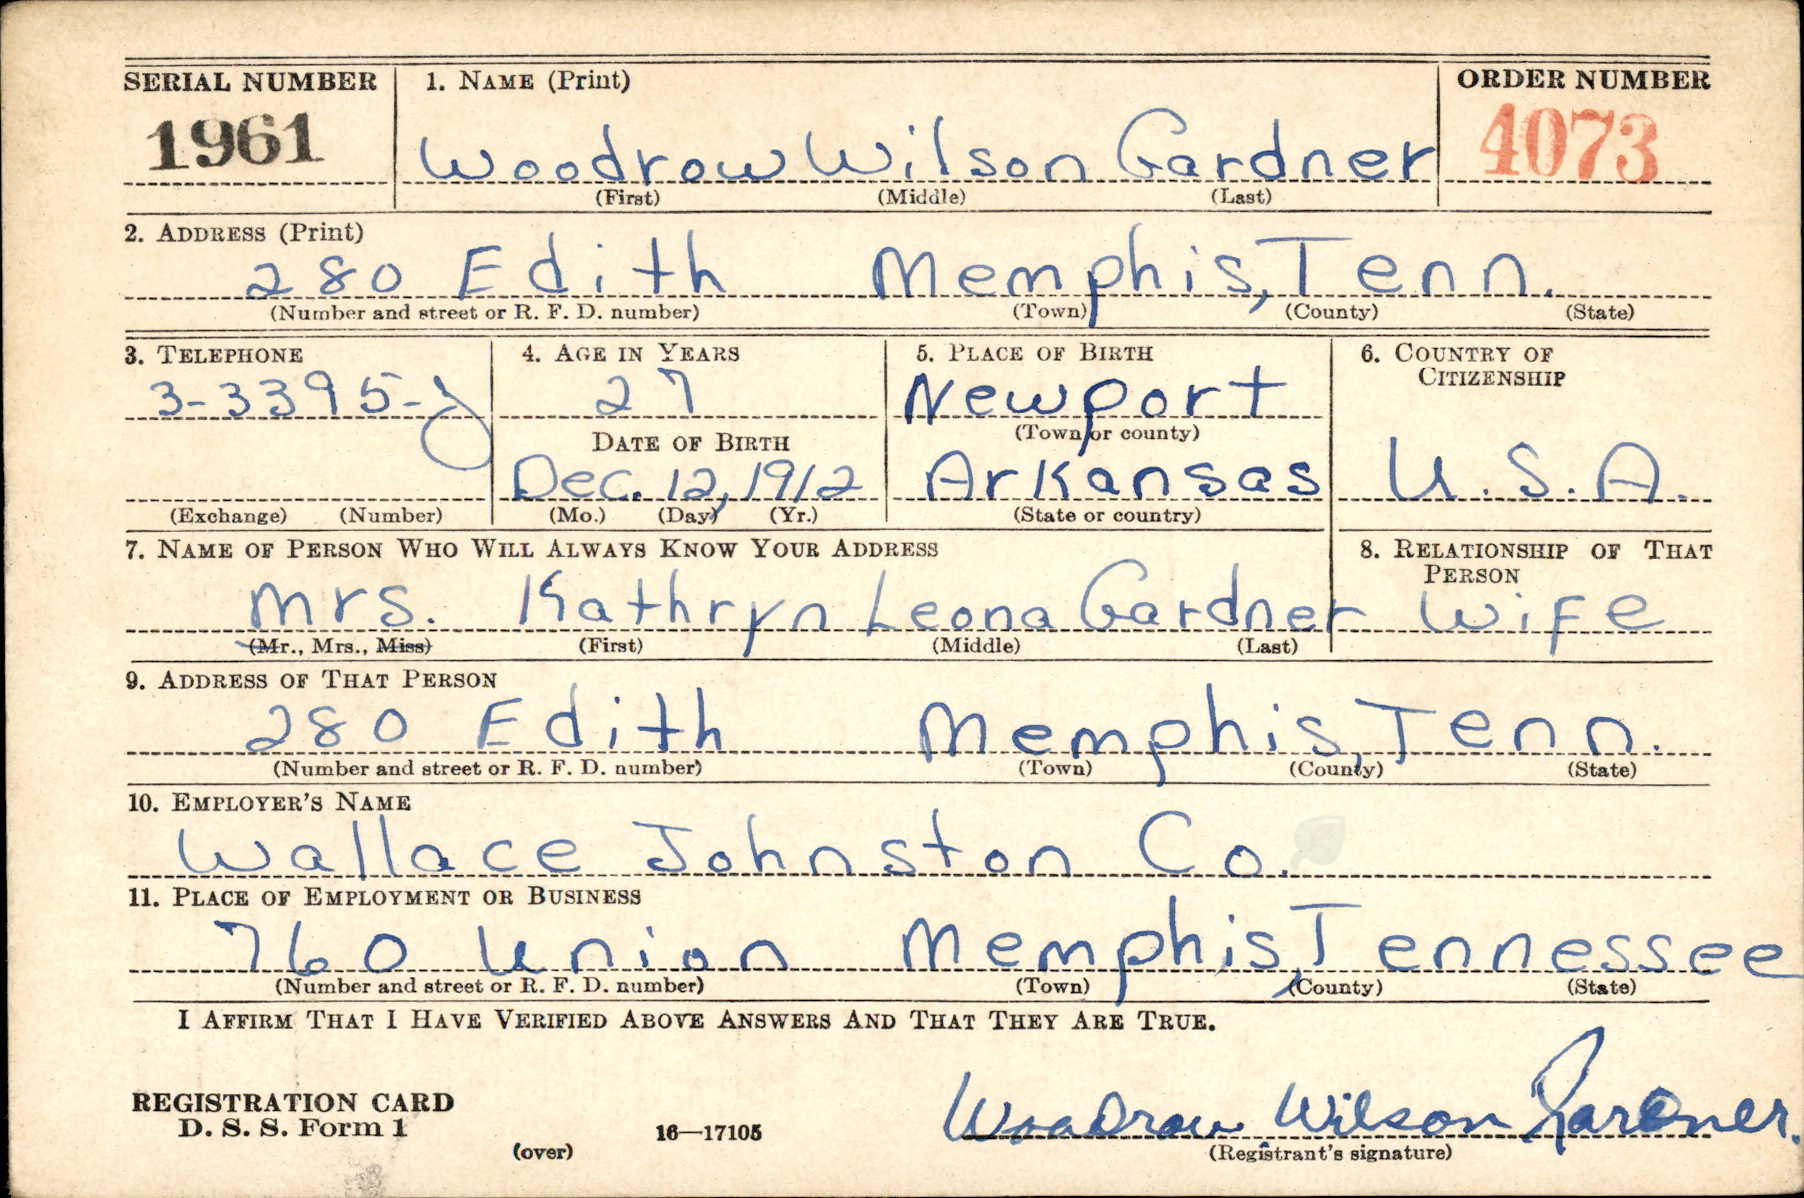 SERIAL NUMBER 1. NAME (Print) ORDER NUMBER
1961 Woodrow Wilson Gardner 4073
(First) (Middle) (Last)
2. ADDRESS (Print)
280 Edith Memphis, Tenn.
(Number and street or R. F. D. number) (Town) (County) (State)
3. TELEPHONE 4. AGE IN YEARS 5. PLACE OF BIRTH 6. COUNTRY OF
CITIZENSHIP
3-3395-J 27 Newport
(Town or county)
DATE OF BIRTH
Dec. 12, 1912 Arkansas U.S.A.
(Exchange) (Number) (Mo.) (Day) (Yr.) (State or country)
7. NAME OF PERSON WHO WILL ALWAYS KNOW YOUR ADDRESS 8. RELATIONSHIP OF THAT
PERSON
Mrs. Kathryn Leona Gardner Wife
(Mr., Mrs., Miss) (First) (Middle) (Last)
9. ADDRESS OF THAT PERSON
280 Edith Memphis, Tenn.
(Number and street or R. F. D. number) (Town) (County) (State)
10. EMPLOYER'S NAME
Wallace Johnston Co.
11. PLACE OF EMPLOYMENT OR BUSINESS
760 Union Memphis, Tennessee
(Number and street or R. F. D. number) (Town) (County) (State)
I AFFIRM THAT I HAVE VERIFIED ABOVE ANSWERS AND THAT THEY ARE TRUE.
REGISTRATION CARD
D. S. S. Form 1
(over) 16—17105 Woodrow Wilson Gardner.
(Registrant's signature)